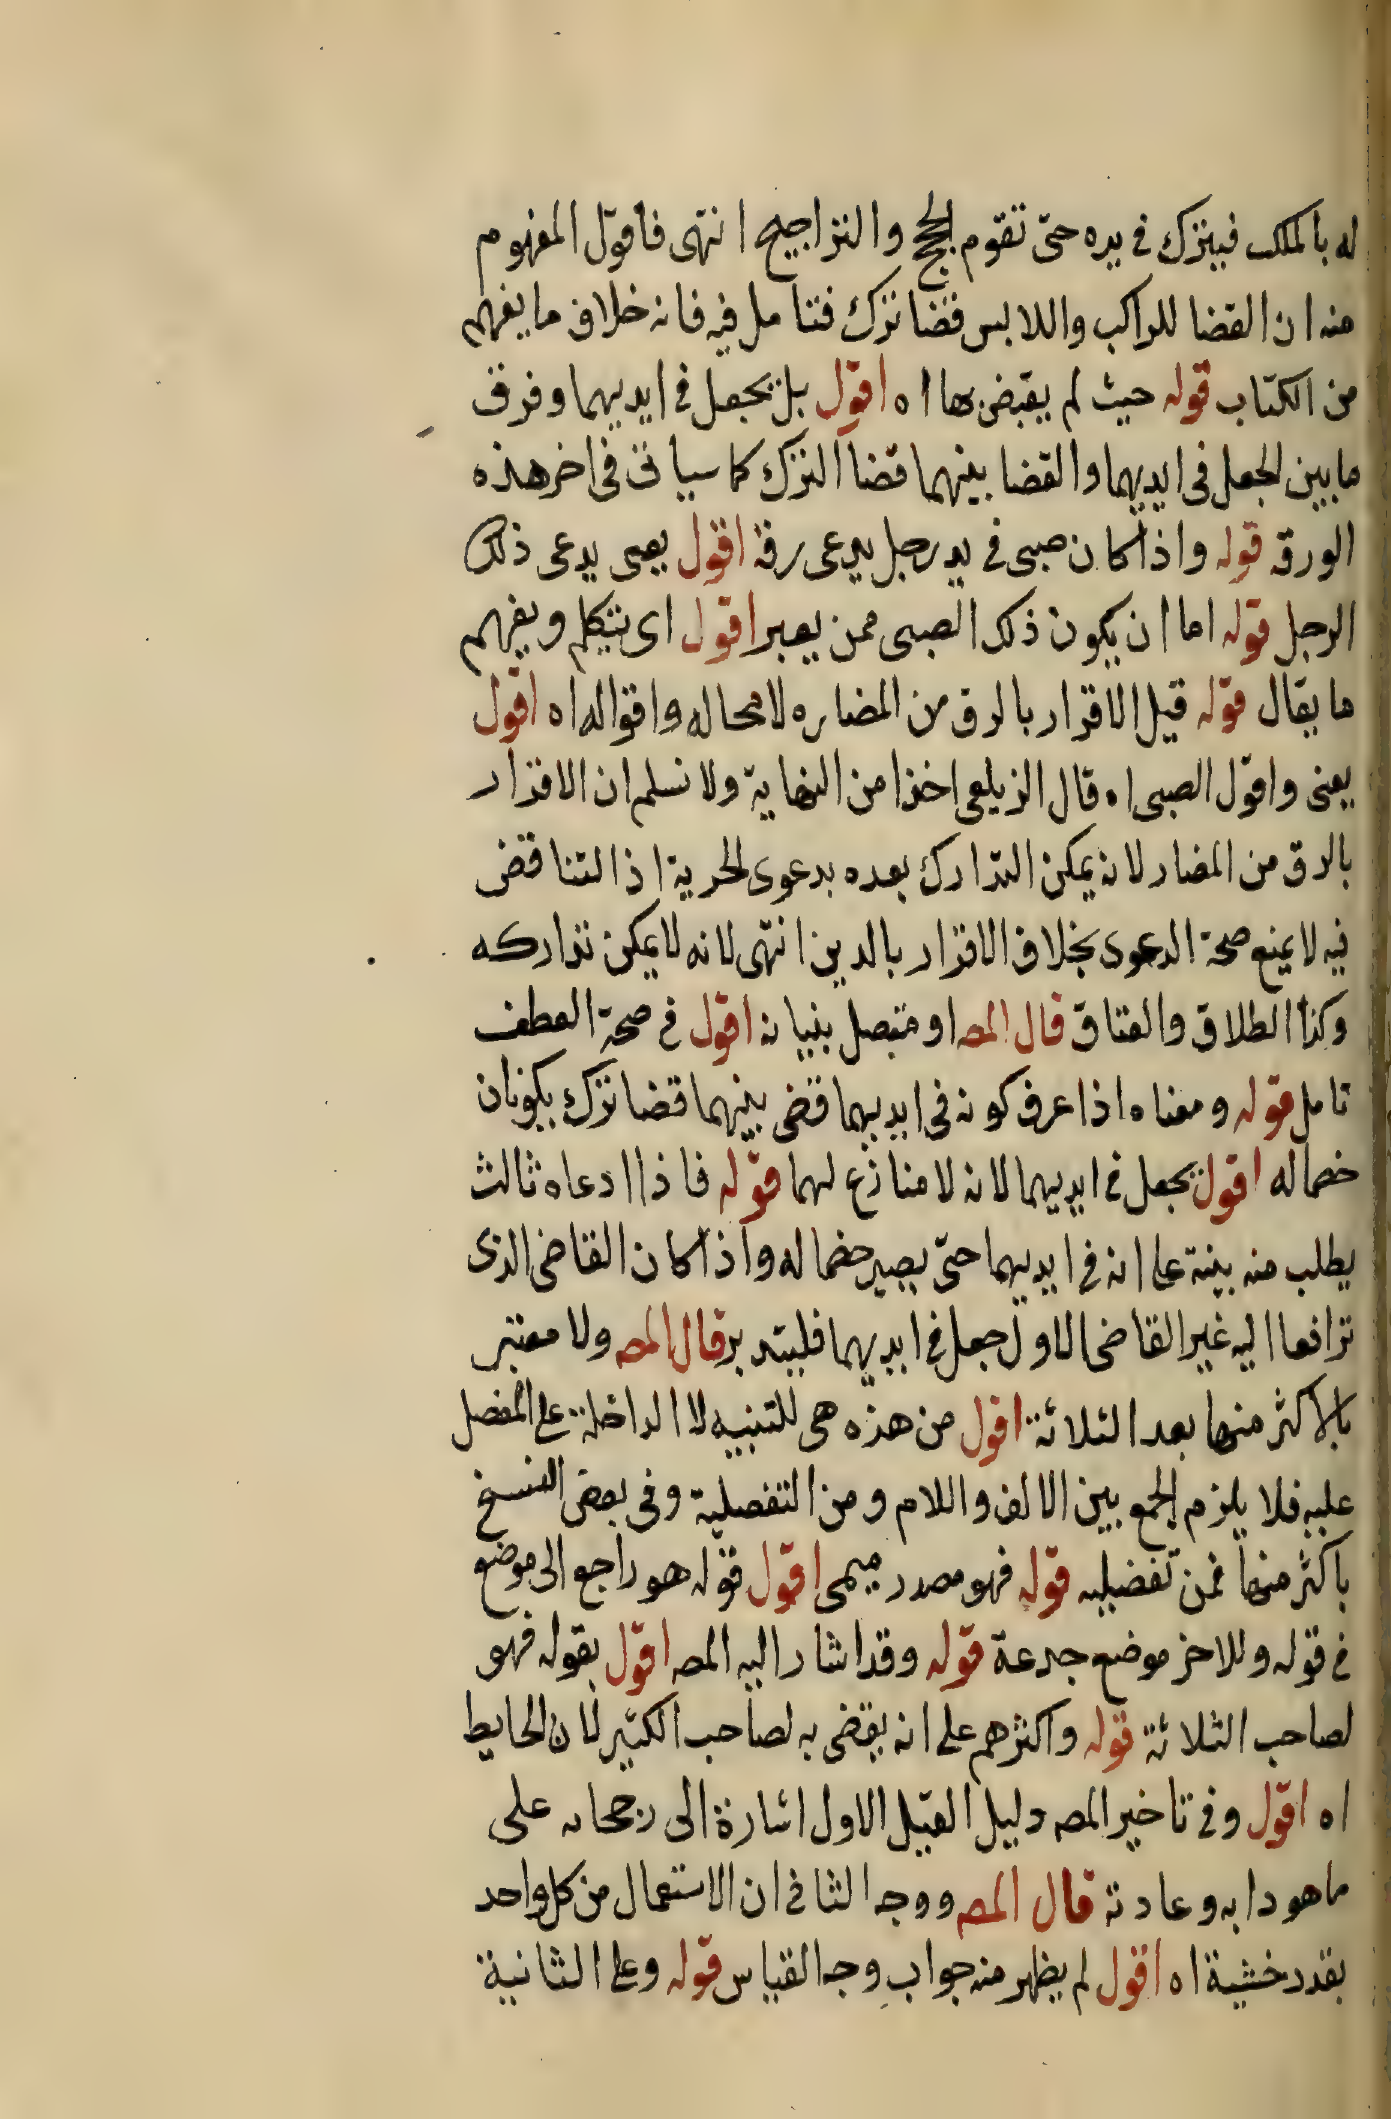 له بالملك فيترك في يده حتى تقوم الحجج والتراجيح انتهى فاقول المفهوم
منه ان القضا للراكب واللابس قضا ترك فتامل فيه فانه خلاف ما يفهم
من الكتاب قوله حيث لم يقبضها اه اقول بل يجعل في ايديهما وفرق
ما بين الجعل في ايديهما والقضا بينهما قضا الترك كما سياتى فى اخر هذه
الورقه قوله واذا كان صبى في يد رجل يدعى رقه اقول يعنى يدعى ذلك
الرجل قوله اما ان يكون ذلك الصبى ممن يعبر اقول اى يتكلم ويفهم
ما يقال قوله قيل الاقرار بالرق من المضاره لا محاله واقواله اه اقول
يعنى واقول الصبى اه قال الزيلعى اخذا من النهاية ولا نسلم ان الاقرار
بالرق من المضار لانه يمكن التدارك بعده بدعوى الحرية اذ التناقض
فيه لا يمنع صحة الدعوى بخلاف الاقرار بالدين انتهى لانه لا يمكن تداركه
وكذا الطلاق والعتاق قال المصه او متصل ببنيانه اقول في صحة العطف
تامل قوله ومعناه اذا عرف كونه في ايديهما قضى بينهما قضا ترك يكونان
خصما له اقول يجعل في ايديهما لانه لا منازع لهما قوله فاذا ادعاه ثالث
يطلب منه بينة على انه في ايديهما حتى يصير خصما له واذا كان القاضى الذى
ترافعا اليه غير القاضى الاول جعل في ايديهما فليتدبر قال المصه ولا معتبر
بالاكثر منها بعد الثلاثة اقول من هذه هى للتبنيه لا الداخلة على المفضل
عليه فلا يلزم الجمع بين الالف واللام ومن التفصلية وفى بعض النسخ
باكثر منها فمن تفضيليه قوله فهو مصدر ميمى اقول قوله هو راجع الى موضع
في قوله وللاخر موضع جدعة قوله وقد اشار اليه المصه اقول بقوله فهو
لصاحب الثلاثة قوله واكثرهم على انه يقضى به لصاحب الكثير لان الحايط
اه اقول وفي تاخير المصه دليل القيل الاول اشارة الى رجحانه على
ما هو دابه وعادته قال المصه ووجه الثانى ان الاستعمال من كل واحد
بقدر خشبة اه اقول لم يظهر منه جواب وجه القياس قوله وعلى الثانية